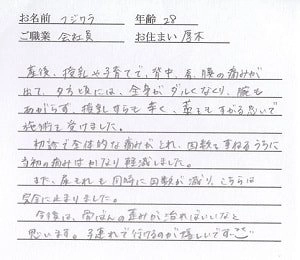 お名前 フジワラ 年齢 28
ご職業 会社員 お住まい 厚木
産後、授乳や子育てで、背中、肩、腰の痛みが
出て、夕方頃には、全身がダルくなり、腕も
あがらず、授乳すらも辛く、藁をもすがる思いで
施術を受けました。
初診で全体的な痛みがとれ、回数を重ねるうちに
当初の痛みはかなり軽減しました。
また、尿もれも同時に回数が減り、こちらは
完全に止まりました。
今後は、骨ばんの歪みが治ればいいなと
思います。子連れで行けるのが嬉しいです